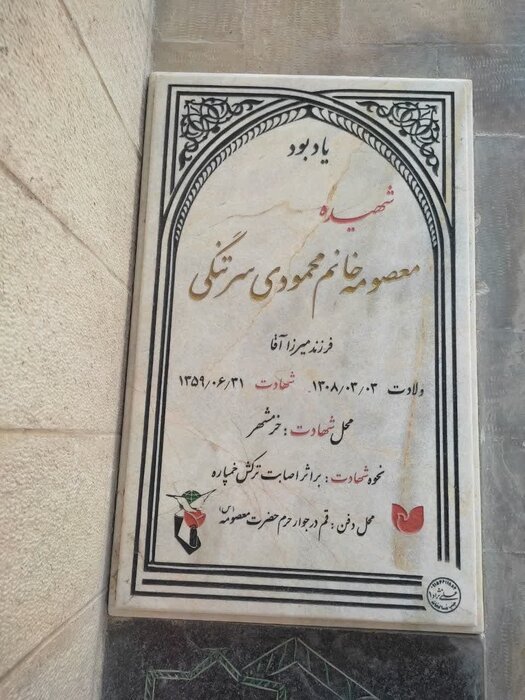 یادبود
شهیده
معصومه خانم محمودی سرتنگی
فرزند میرزا آقا
ولادت ۱۳۰۸/۰۳/۰۳ شهادت ۱۳۵۹/۰۶/۳۱
محل شهادت : خرمشهر
نحوه شهادت : براثر اصابت ترکش خمپاره
محل دفن : قم در جوار حرم حضرت معصومه (س)